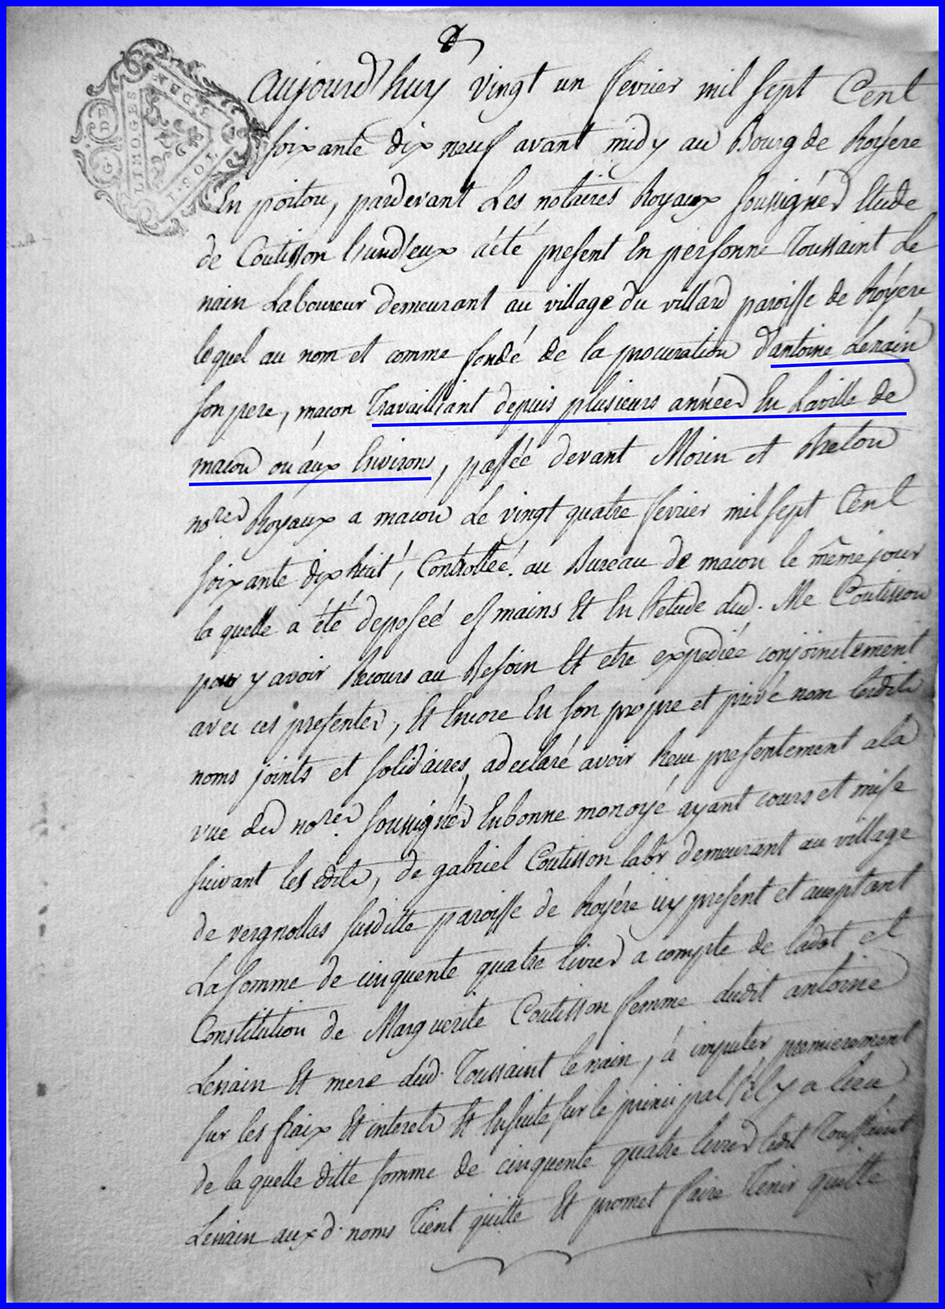 G. DE
LIMOGES
Aujourd'huy vingt un fevrier mil sept Cent
soixante dix neuf avant midy au Bourg de Royere
En poitou, pardevant Les notaires Royaux soussignés Etude
de Coutisson a été present En personne Toussaint Le
nain Laboureur demeurant au village du villard paroisse de Royere
lequel au nom et comme fondé de la procuration d'antoine Lenain
son pere, macon Travailliant depuis plusieurs années En Laville de
macon ou aux Environs, passée devant Morin et
nores Royaux a macon Le vingt quatre fevrier mil sept Cent
soixante dix huit, Controllée au Bureau de macon le même jour
la quelle a été deposée es mains Et En l'etude dud. Me Coutisson
pour y avoir Recours au Besoin Et etre expediée conjoinctement
avec ces presentes, Et Encore En son propre et privé nom lesdits
noms joints et solidaires, a declaré avoir Reçu presentement a la
vue des nores soussignés En bonne monoyé ayant cours et mise
suivant les edits, de gabriel Coutisson labr demeurant au village
de vergnollas susditte paroisse de Royére icy present et acceptant
La somme de cinquente quatre livres a compte de ladot et
Constitution de Marguerite Coutisson femme dudit antoine
Lenain Et mere dud. Toussaint le nain, à imputer premierement
sur les fraix Et interets Et Ensuite sur le principal s'il y a lieu
de la quelle ditte somme de cinquente quatre livres ledit Toussaint
Lenain aux d. noms Tient quitte Et promet faire Tenir quitte